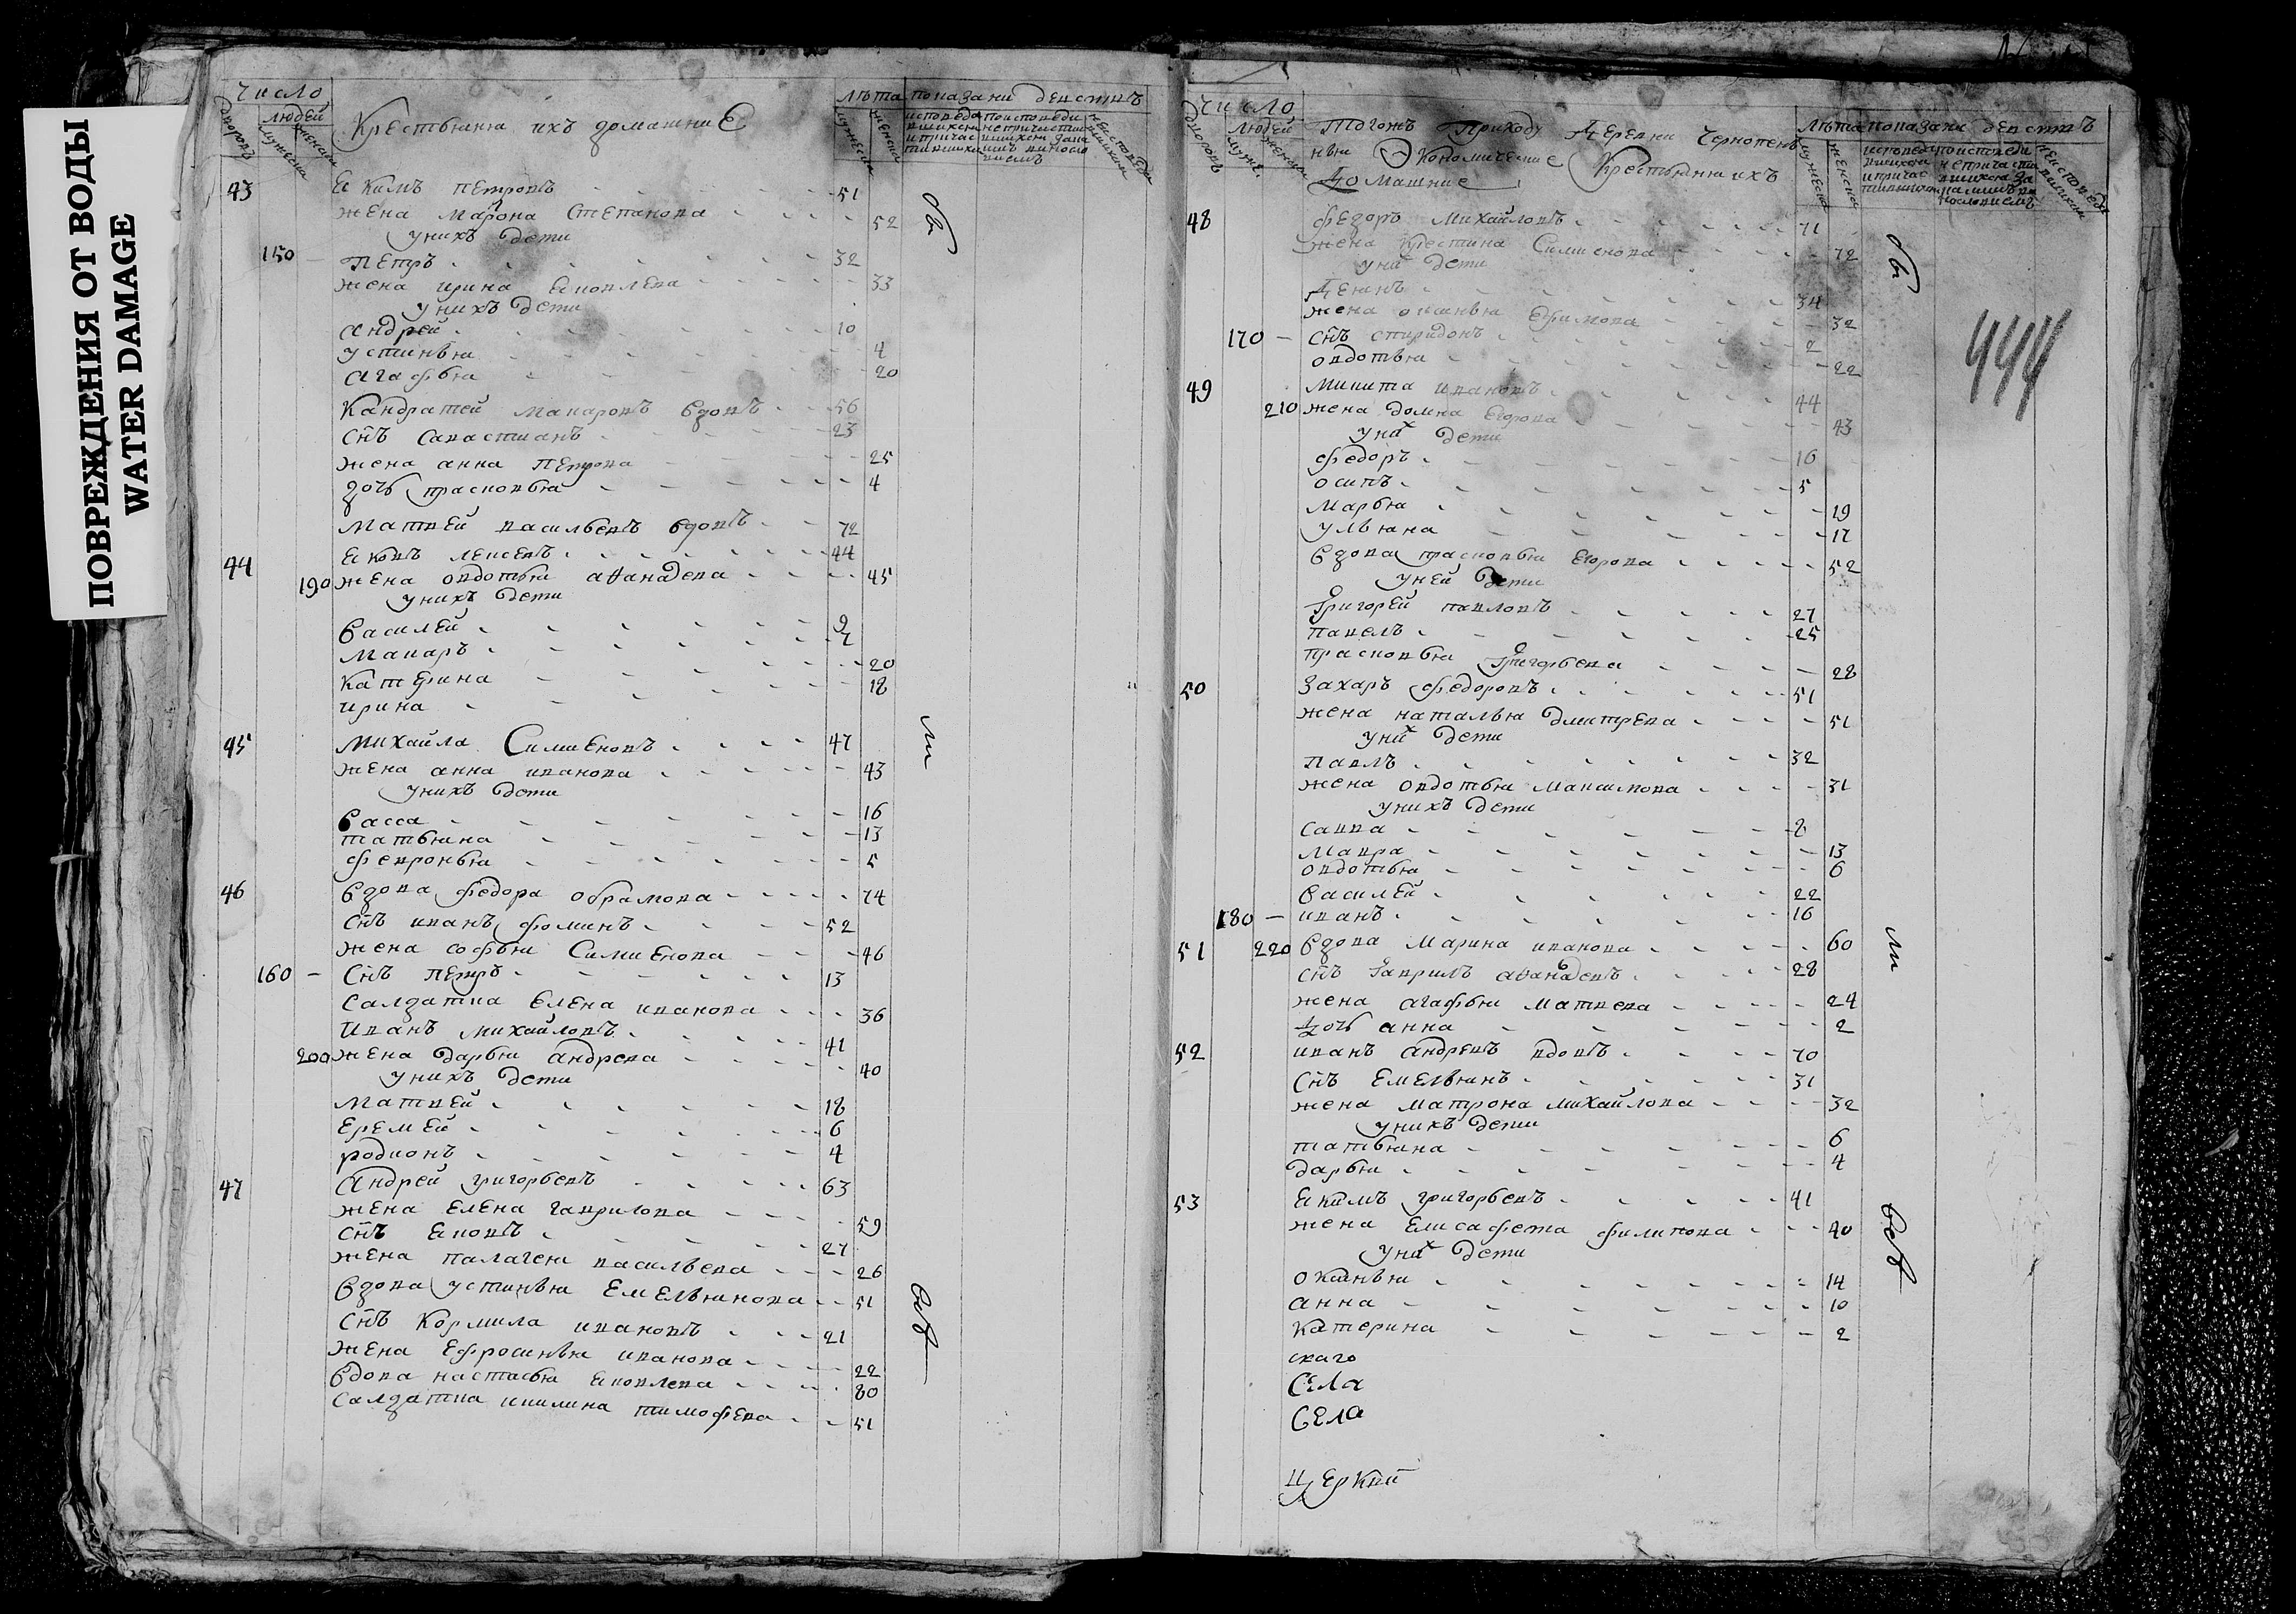 ПОВРЕЖДЕНИЯ ОТ ВОДЫ
WATER DAMAGE
число
людей
Крестьяня ихъ домашние
лѣта показани действъ
43 Екимъ петровъ 51
жена Марѳона Степанова 52
унихъ дети
150 петръ 32
жена ирина Ековлева 33
унихъ дети
андрей 10
устинья 4
агафья 20
Кандратей макаровъ вдовъ 56
снъ Савастианъ 23
жена анна петрова 25
дочь прасковья 4
матвей васильевъ вдовъ 72
44 Ековъ лексевъ 44
190 жена овдотья аѳанадева 45
унихъ дети
василей 9
макаръ 7
катерина 20
ирина 18
45 михайла Симионовъ 47
жена анна иванова 43
унихъ дети
васса 16
татьяна 13
февронья 5
46 вдова федора обрамова 74
снъ иванъ фоминъ 52
жена софья Симионова 46
160 снъ петръ 13
салдатка елена иванова 36
иванъ михайловъ 41
200 жена дарья андрева 40
унихъ дети
матвей 18
еремей 6
родионъ 4
47 андрей григорьевъ 63
жена елена гаврилова 59
снъ Ековъ 27
жена палагея васильева 26
вдова устинья Емельянова 51
снъ Кормила ивановъ 21
жена Ефросинья иванова 22
вдова настасья Ековлева 80
салдатка акилина тимофева 51
число
людей
Тогожъ Приходу Деревни
Экономические Крестьяня ихъ
домашние
лѣта показани действъ
48 федоръ михайловъ 71
жена крестина Симионова 72
унихъ дети
34
жена оксинья Ефимова 32
170 снъ спиридонъ 2
овдотья 22
444
49 микита ивановъ 44
210 жена домна Егорова 43
унихъ дети
федоръ 16
осипъ 5
марья 19
ульяна 17
вдова прасковья Егорова 52
уней дети
григорей павловъ 27
павелъ 25
прасковья григорьева 28
50 захаръ федоровъ 51
жена наталья дмитрева 51
унихъ дети
павлъ 32
жена овдотья максимова 31
унихъ дети
савва 8
мавра 13
овдотья 6
василей 22
180 иванъ 16
51 220 вдова марина иванова 60
снъ гаврилъ аѳанадевъ 28
жена агафья матвева 24
дочь анна 2
52 иванъ андревъ вдовъ 70
снъ Емельянъ 31
жена матрона михайлова 32
унихъ дети
татьяна 6
дарья 4
53 Екимъ григорьевъ 41
жена Елисафета филипова 40
унихъ дети
оксинья 14
анна 10
катерина 2
скаго
Села
Села
церкви